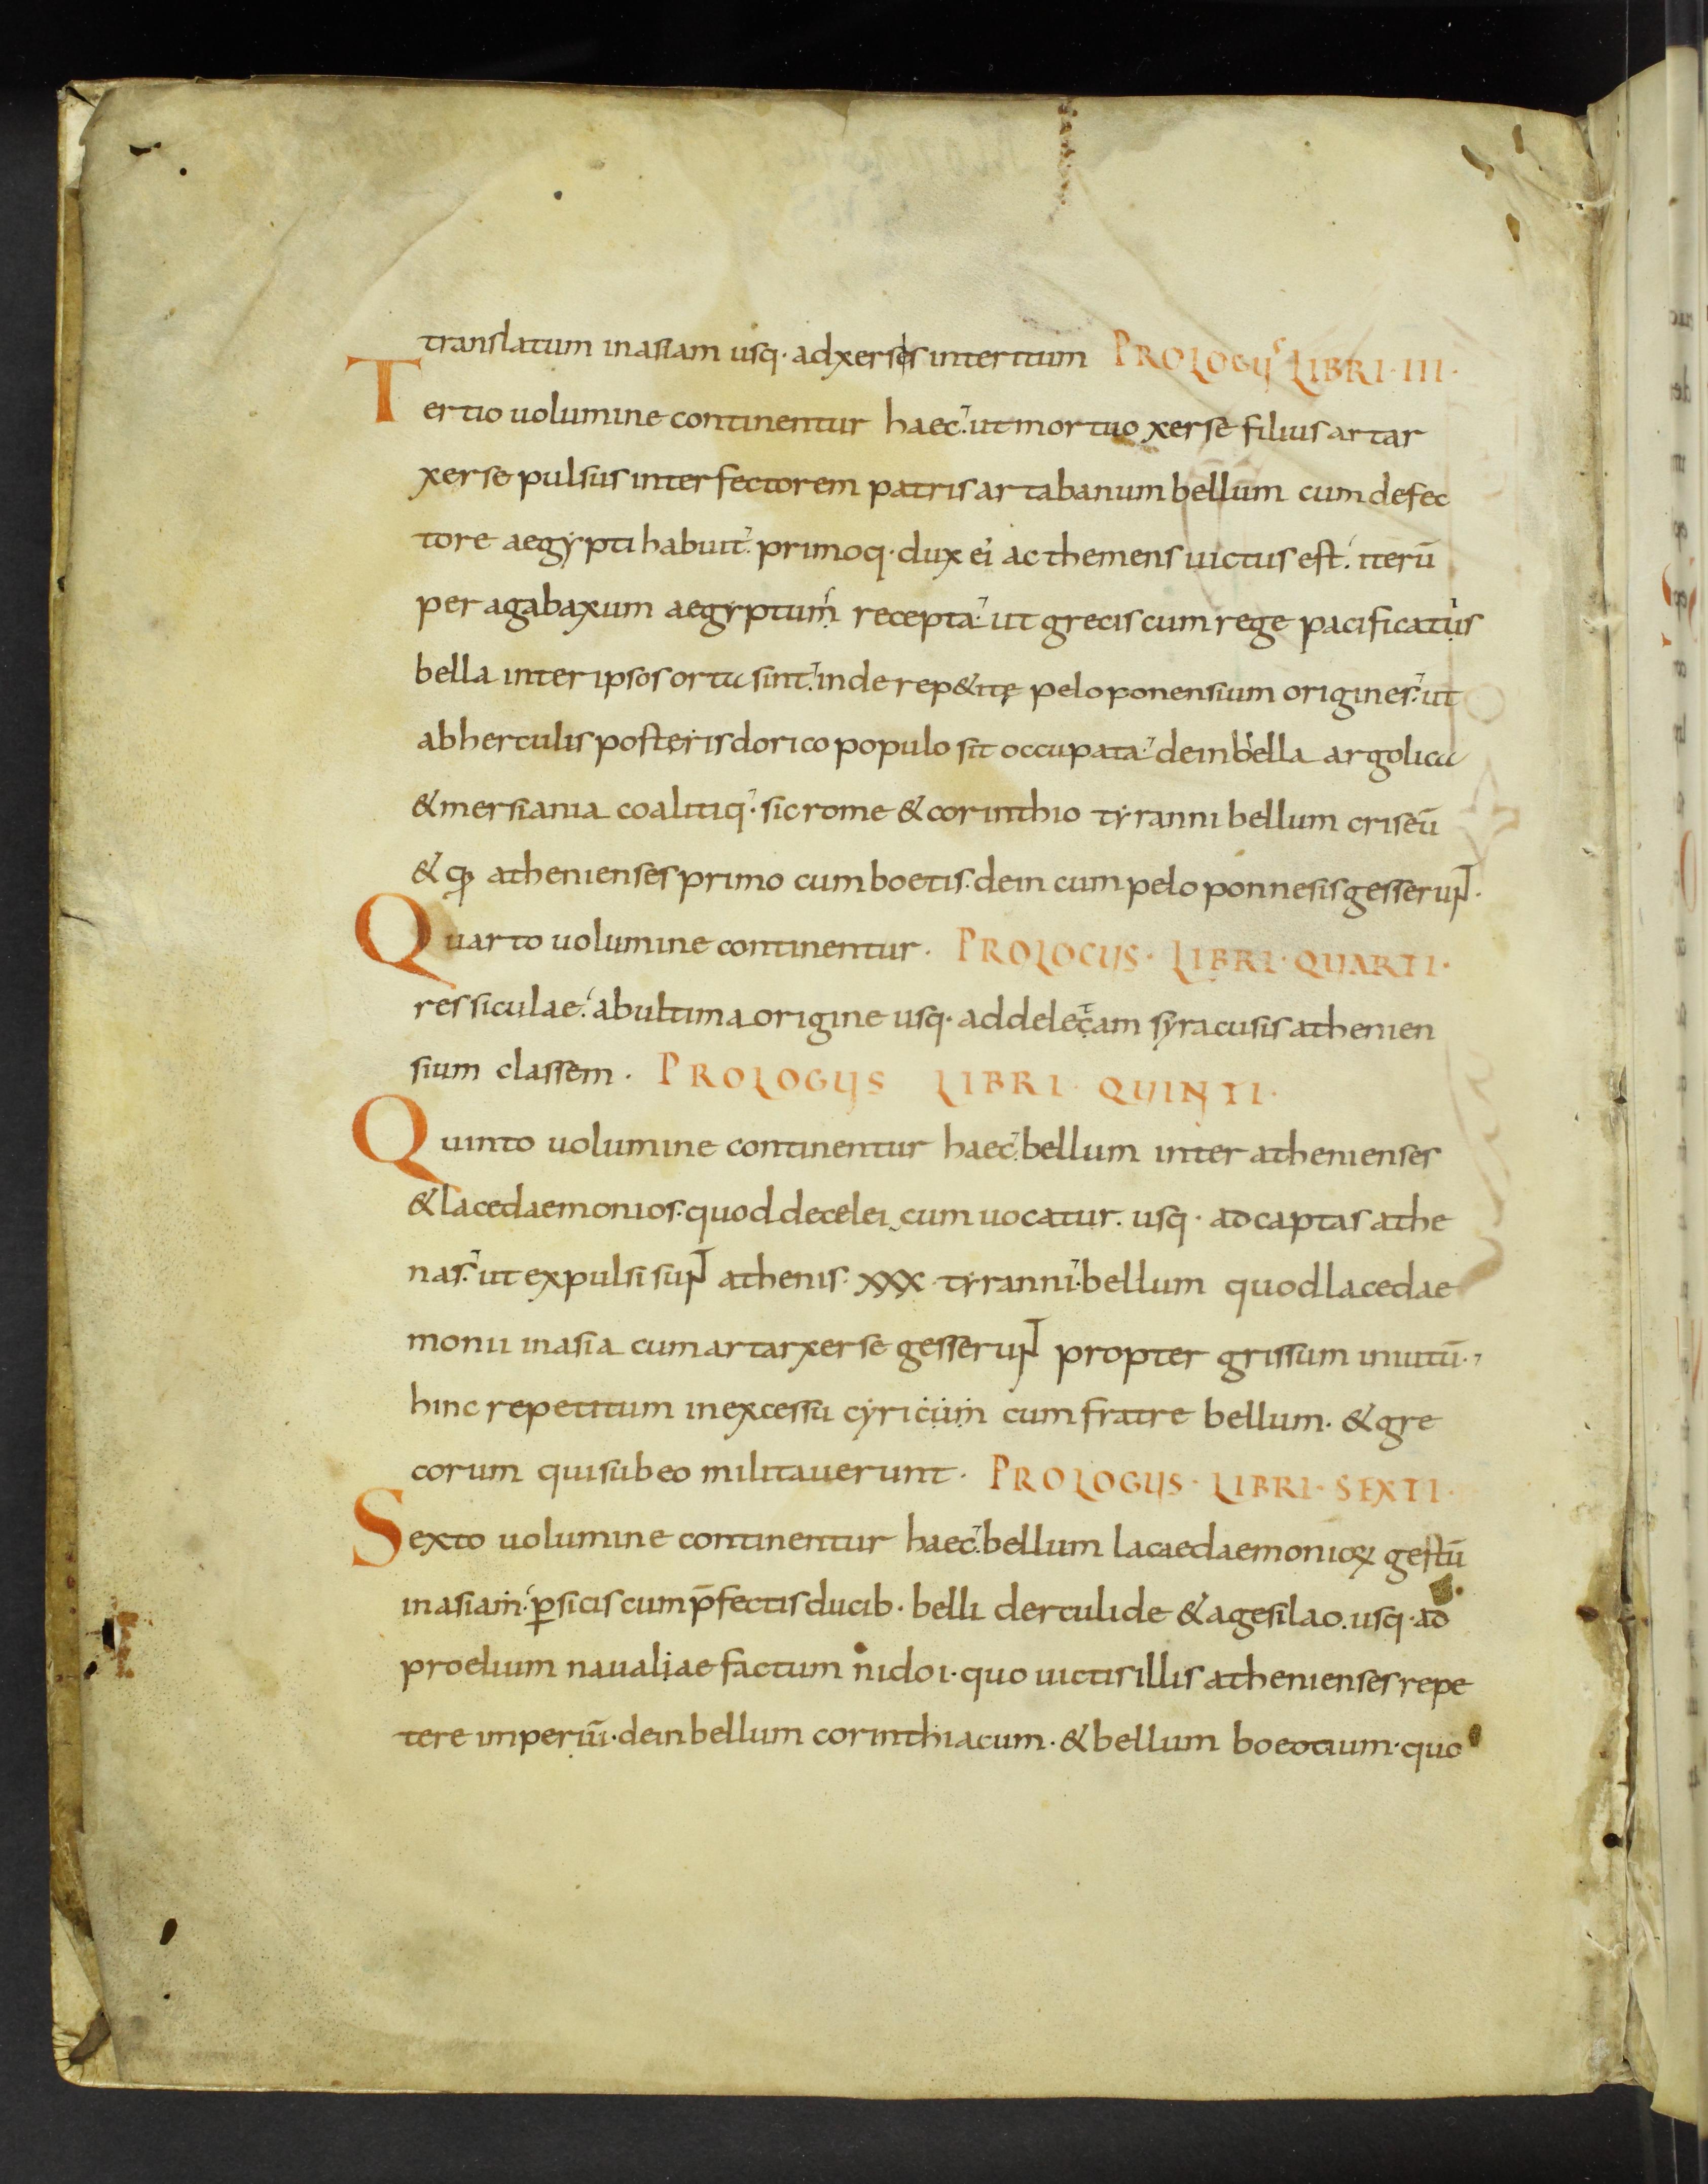 translatum inasiam usq· adxerses interitum PROLOGUS LIBRI·III·
Tertio uolumine continentur haec· ut mortuo xerse filius artar
xerse pulsus interfectorem patris artabanum bellum cum defec
tore aegypti habuit· primoq· dux ei acthemens uictus est· iterū
per agabaxum aegyptum recepta· ut grecis cum rege pacificatus
bella inter ipsos orta sint· inde rep&ite peloponensium origines· ut
ab herculis posteris dorico populo sit occupata· dein bella argolica
& mersiania coalitiq· sicrome & corinthio tyranni bellum criseū
& qđ athenienses primo cum boetis· dein cum peloponnesis gesserunt·
Quarto uolumine continentur· PROLOCUS· LIBRI· QUARTI·
res siculae· ab ultima origine usq· ad delectam syracusis athenien
sium classem· PROLOGUS LIBRI· QUINTI·
Quinto uolumine continentur haec· bellum inter athenienses
& lacedaemonios· quod decelei cum uocatur· usq· ad captas athe
nas· ut expulsi sunt athenis· XXX· tyranni· bellum quod lacedae
monii in asia cum artarxerse gesserunt propter grissum iniutū·
hinc repetitum in excessu cyricum cum fratre bellum· & gre
corum qui sub eo militauerunt· PROLOGUS· LIBRI· SEXTI·
Sexto uolumine continentur haec· bellum lacaedaemonioꝝ gestū
in asiam· ꝑsicis cum p̄fectis ducib· belli derculide & agesilao· usq· ad
proelium naualiae factum nidoi· quo uictis illis athenienses repe
tere imperiū· dein bellum corinthiacum· & bellum boeotium· quo